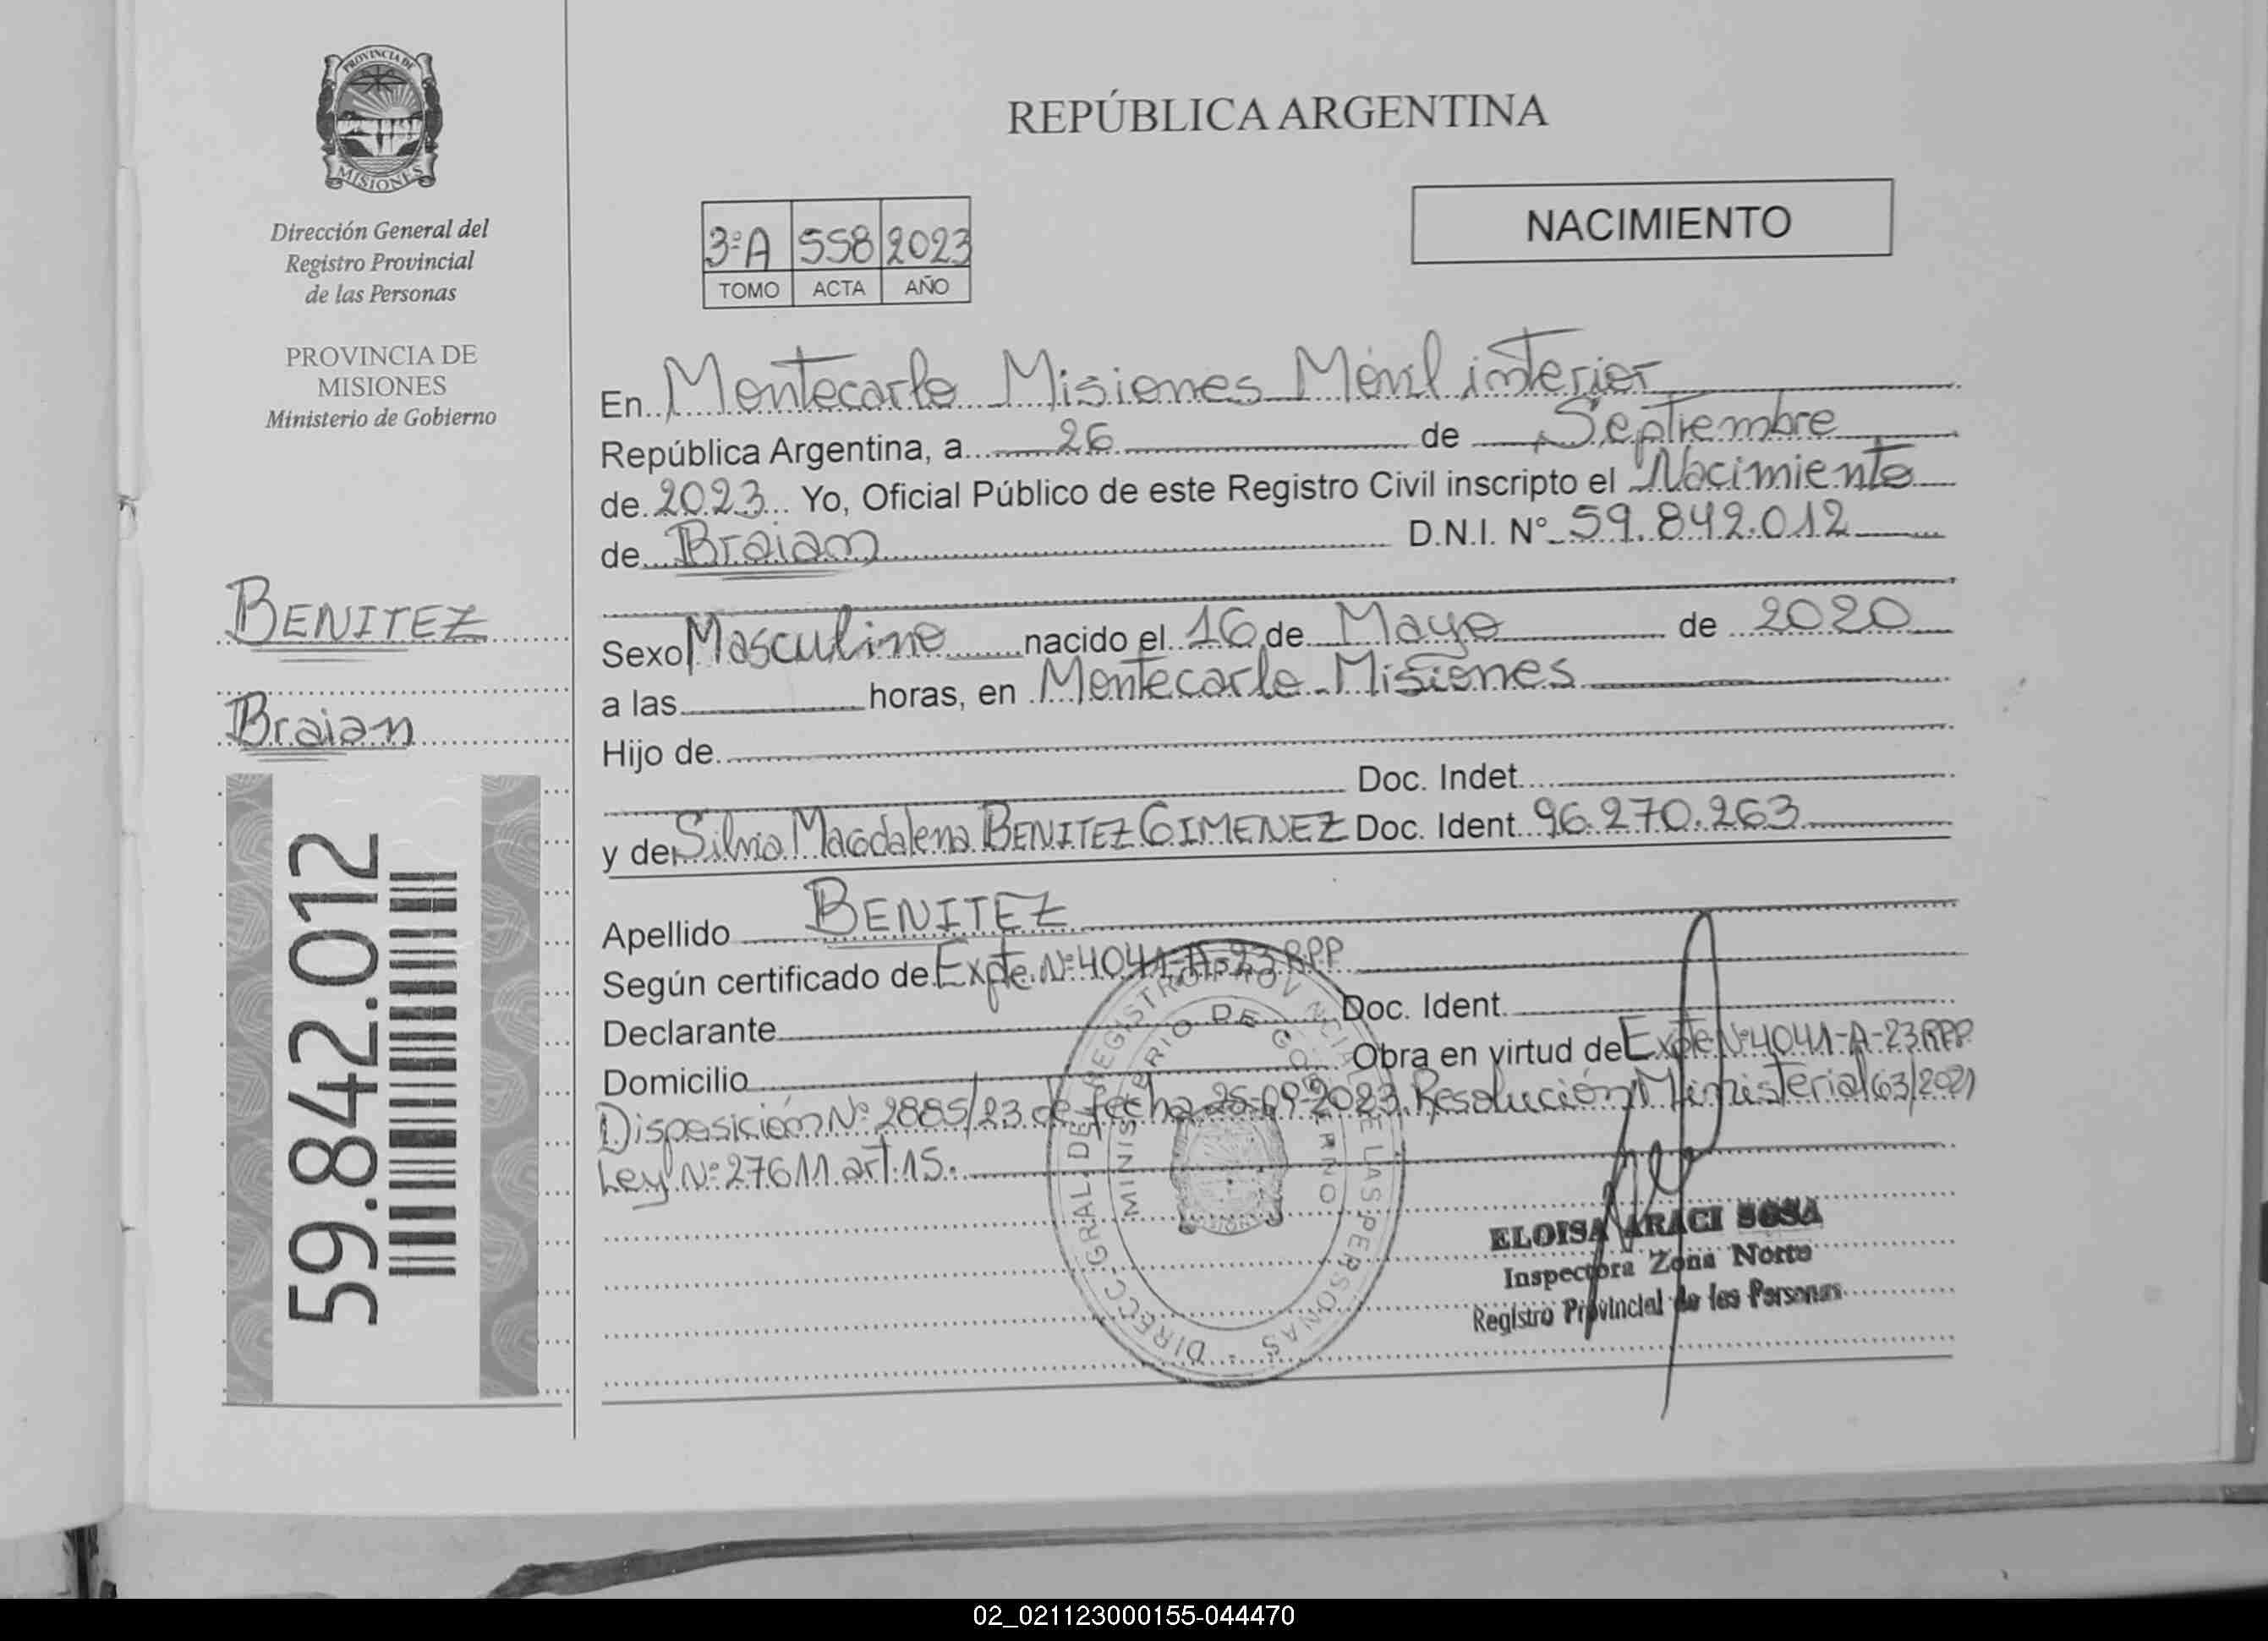 PROVINCIA DE
MISIONES
Dirección General del
Registro Provincial
de las Personas
PROVINCIA DE
MISIONES
Ministerio de Gobierno
BENITEZ
Braian
59.842.012
REPÚBLICA ARGENTINA
NACIMIENTO
3ºA 558 2023
TOMO ACTA AÑO
En Montecarlo Misiones Móvil interior
República Argentina, a 26 de Septiembre
de 2023 Yo, Oficial Público de este Registro Civil inscripto el Nacimiento
de Braian D.N.I. Nº 59.842.012
Sexo Masculino nacido el 16 de Mayo de 2020
a las horas, en Montecarlo - Misiones
Hijo de
Doc. Indet.
y de Silvia Magdalena BENITEZ GIMENEZ Doc. Ident. 96.270.263
Apellido BENITEZ
Según certificado de Expte. Nº 4041-A-23 RPP
Declarante Doc. Ident.
Domicilio Obra en virtud de Expte Nº 4041-A-23 RPP
Disposición Nº 2885/23 de fecha 25-09-2023. Resolución Ministerial 63/2021
Ley Nº 27611 art. 15.
DIRECC. GRAL. DE REGISTRO PROVINCIAL DE LAS PERSONAS
MINISTERIO DE GOBIERNO
ELOISA ARACI SOSA
Inspectora Zona Norte
Registro Provincial de las Personas
02_021123000155-044470